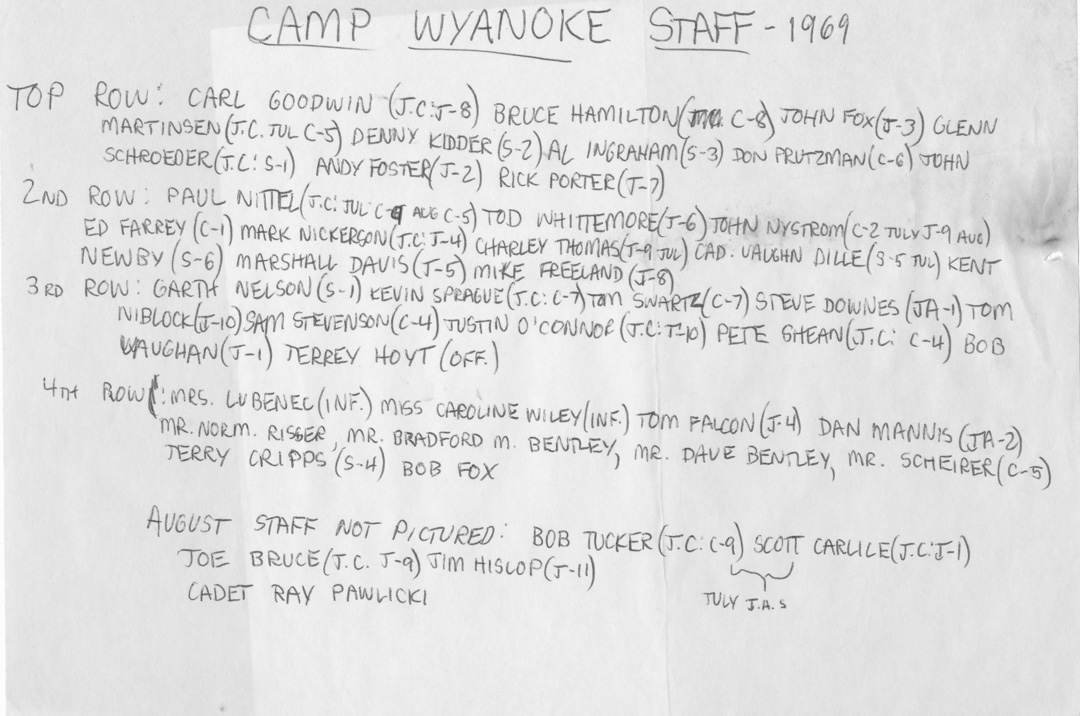 CAMP WYANOKE STAFF - 1969
TOP ROW: CARL GOODWIN (J.C: J-8) BRUCE HAMILTON( C-8) JOHN FOX(J-3) GLENN
MARTINSEN(J.C. JUL C-5) DENNY KIDDER(S-2) AL INGRAHAM(S-3) DON PRUTZMAN(C-6) JOHN
SCHROEDER(J.C: S-1) ANDY FOSTER(J-2) RICK PORTER(J-7)
2ND ROW: PAUL NITTEL(J.C: JUL C-9 AUG C-5) TOD WHITTEMORE(J-6) JOHN NYSTROM(C-2 JULY J-9 AUG)
ED FARREY (C-1) MARK NICKERSON(J.C: J-4) CHARLEY THOMAS(J-9 JUL) CAD. VAUGHN DILLE(S-5 JUL) KENT
NEWBY (S-6) MARSHALL DAVIS(J-5) MIKE FREELAND(J-8)
3RD ROW: GARTH NELSON(S-1) KEVIN SPRAGUE(J.C: C-7) TOM SWARTZ(C-7) STEVE DOWNES (JA-1) TOM
NIBLOCK(J-10) SAM STEVENSON(C-4) JUSTIN O'CONNOR(J.C: J-10) PETE SHEAN(J.C: C-4) BOB
VAUGHAN(J-1) TERREY HOYT (OFF.)
4TH ROW: MRS. LUBENEC(INF.) MISS CAROLINE WILEY(INF.) TOM FALCON(J-4) DAN MANNIS(JA-2)
MR. NORM. RISSER, MR. BRADFORD M. BENTLEY, MR. DAVE BENTLEY, MR. SCHEIRER(C-5)
TERRY CRIPPS (S-4) BOB FOX
AUGUST STAFF NOT PICTURED: BOB TUCKER(J.C: C-9) SCOTT CARLILE(J.C: J-1)
JOE BRUCE(J.C. J-9) JIM HISLOP(J-11)
JULY J.A.S
CADET RAY PAWLICKI